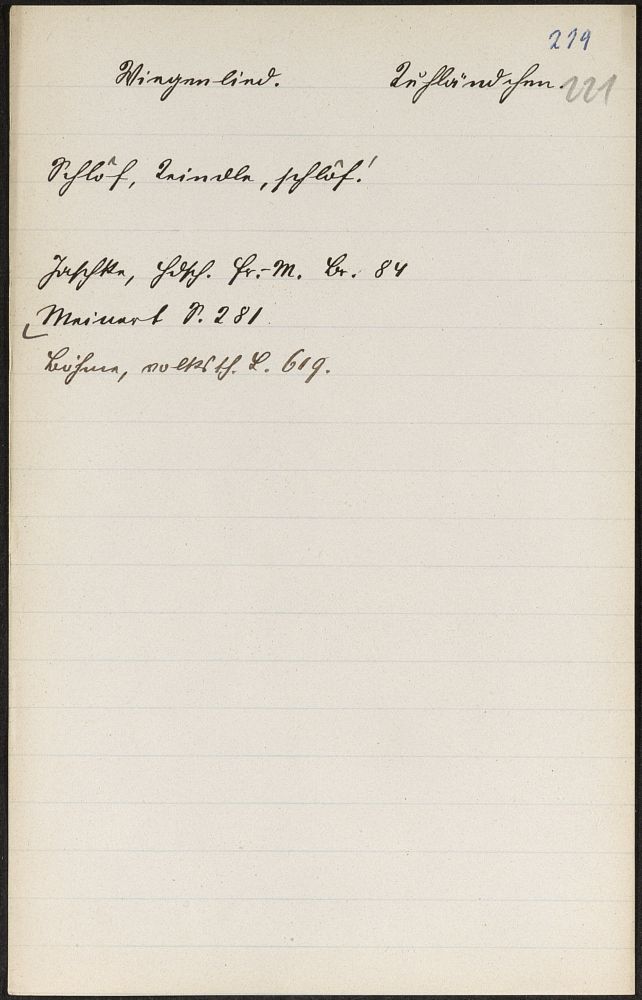 219
Wiegenlied. Kuhländchen. 221
Schlôf, Kindle, schlôf!
Jaschke, Hdsch. Fr.-M. Br. 84
Meinert S. 281
Böhme, volksth. L. 619.